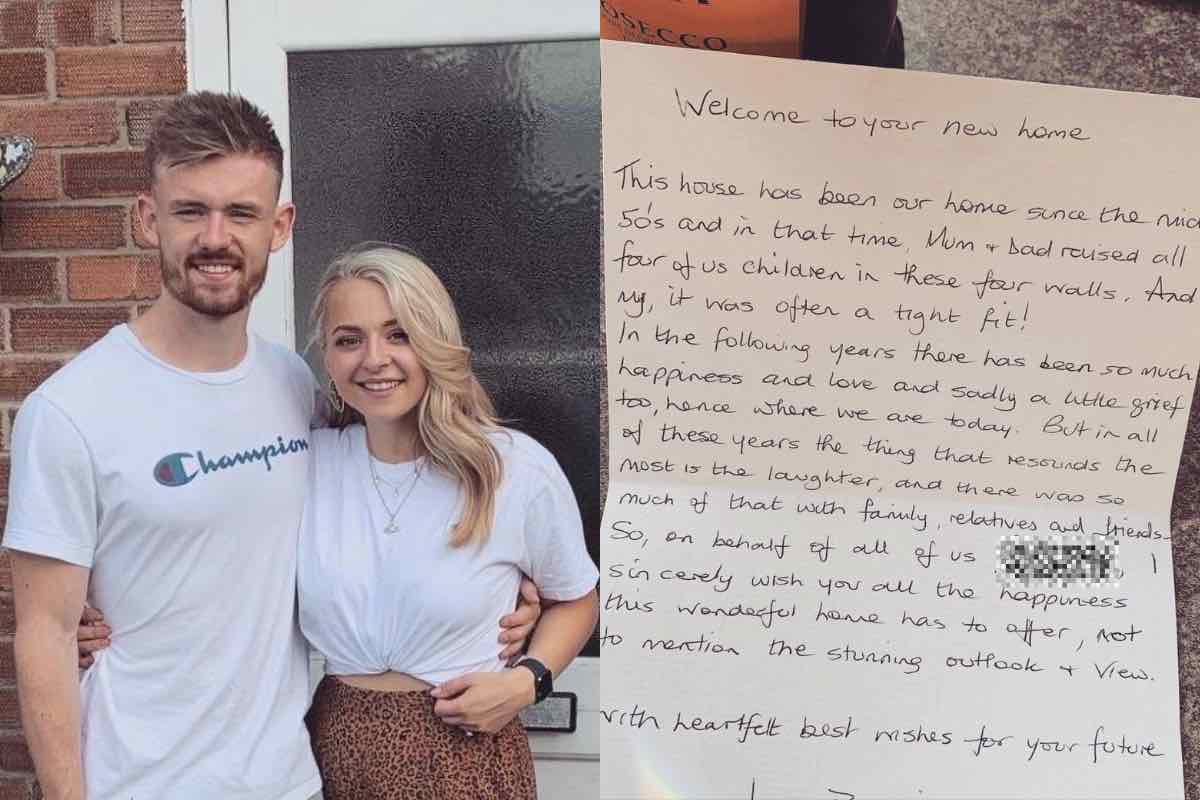 Champion
OSECCO
Welcome to your new home
This house has been our home since the mid
50's and in that time, Mum + Dad raised all
four of us children in these four walls. And
my, it was often a tight fit!
In the following years there has been so much
happiness and love and sadly a little grief
too, hence where we are today. But in all
of these years the thing that resounds the
most is the laughter, and there was so
much of that with family, relatives and friends.
So, on behalf of all of us I
sincerely wish you all the happiness
this wonderful home has to offer, not
to mention the stunning outlook + view.
with heartfelt best wishes for your future